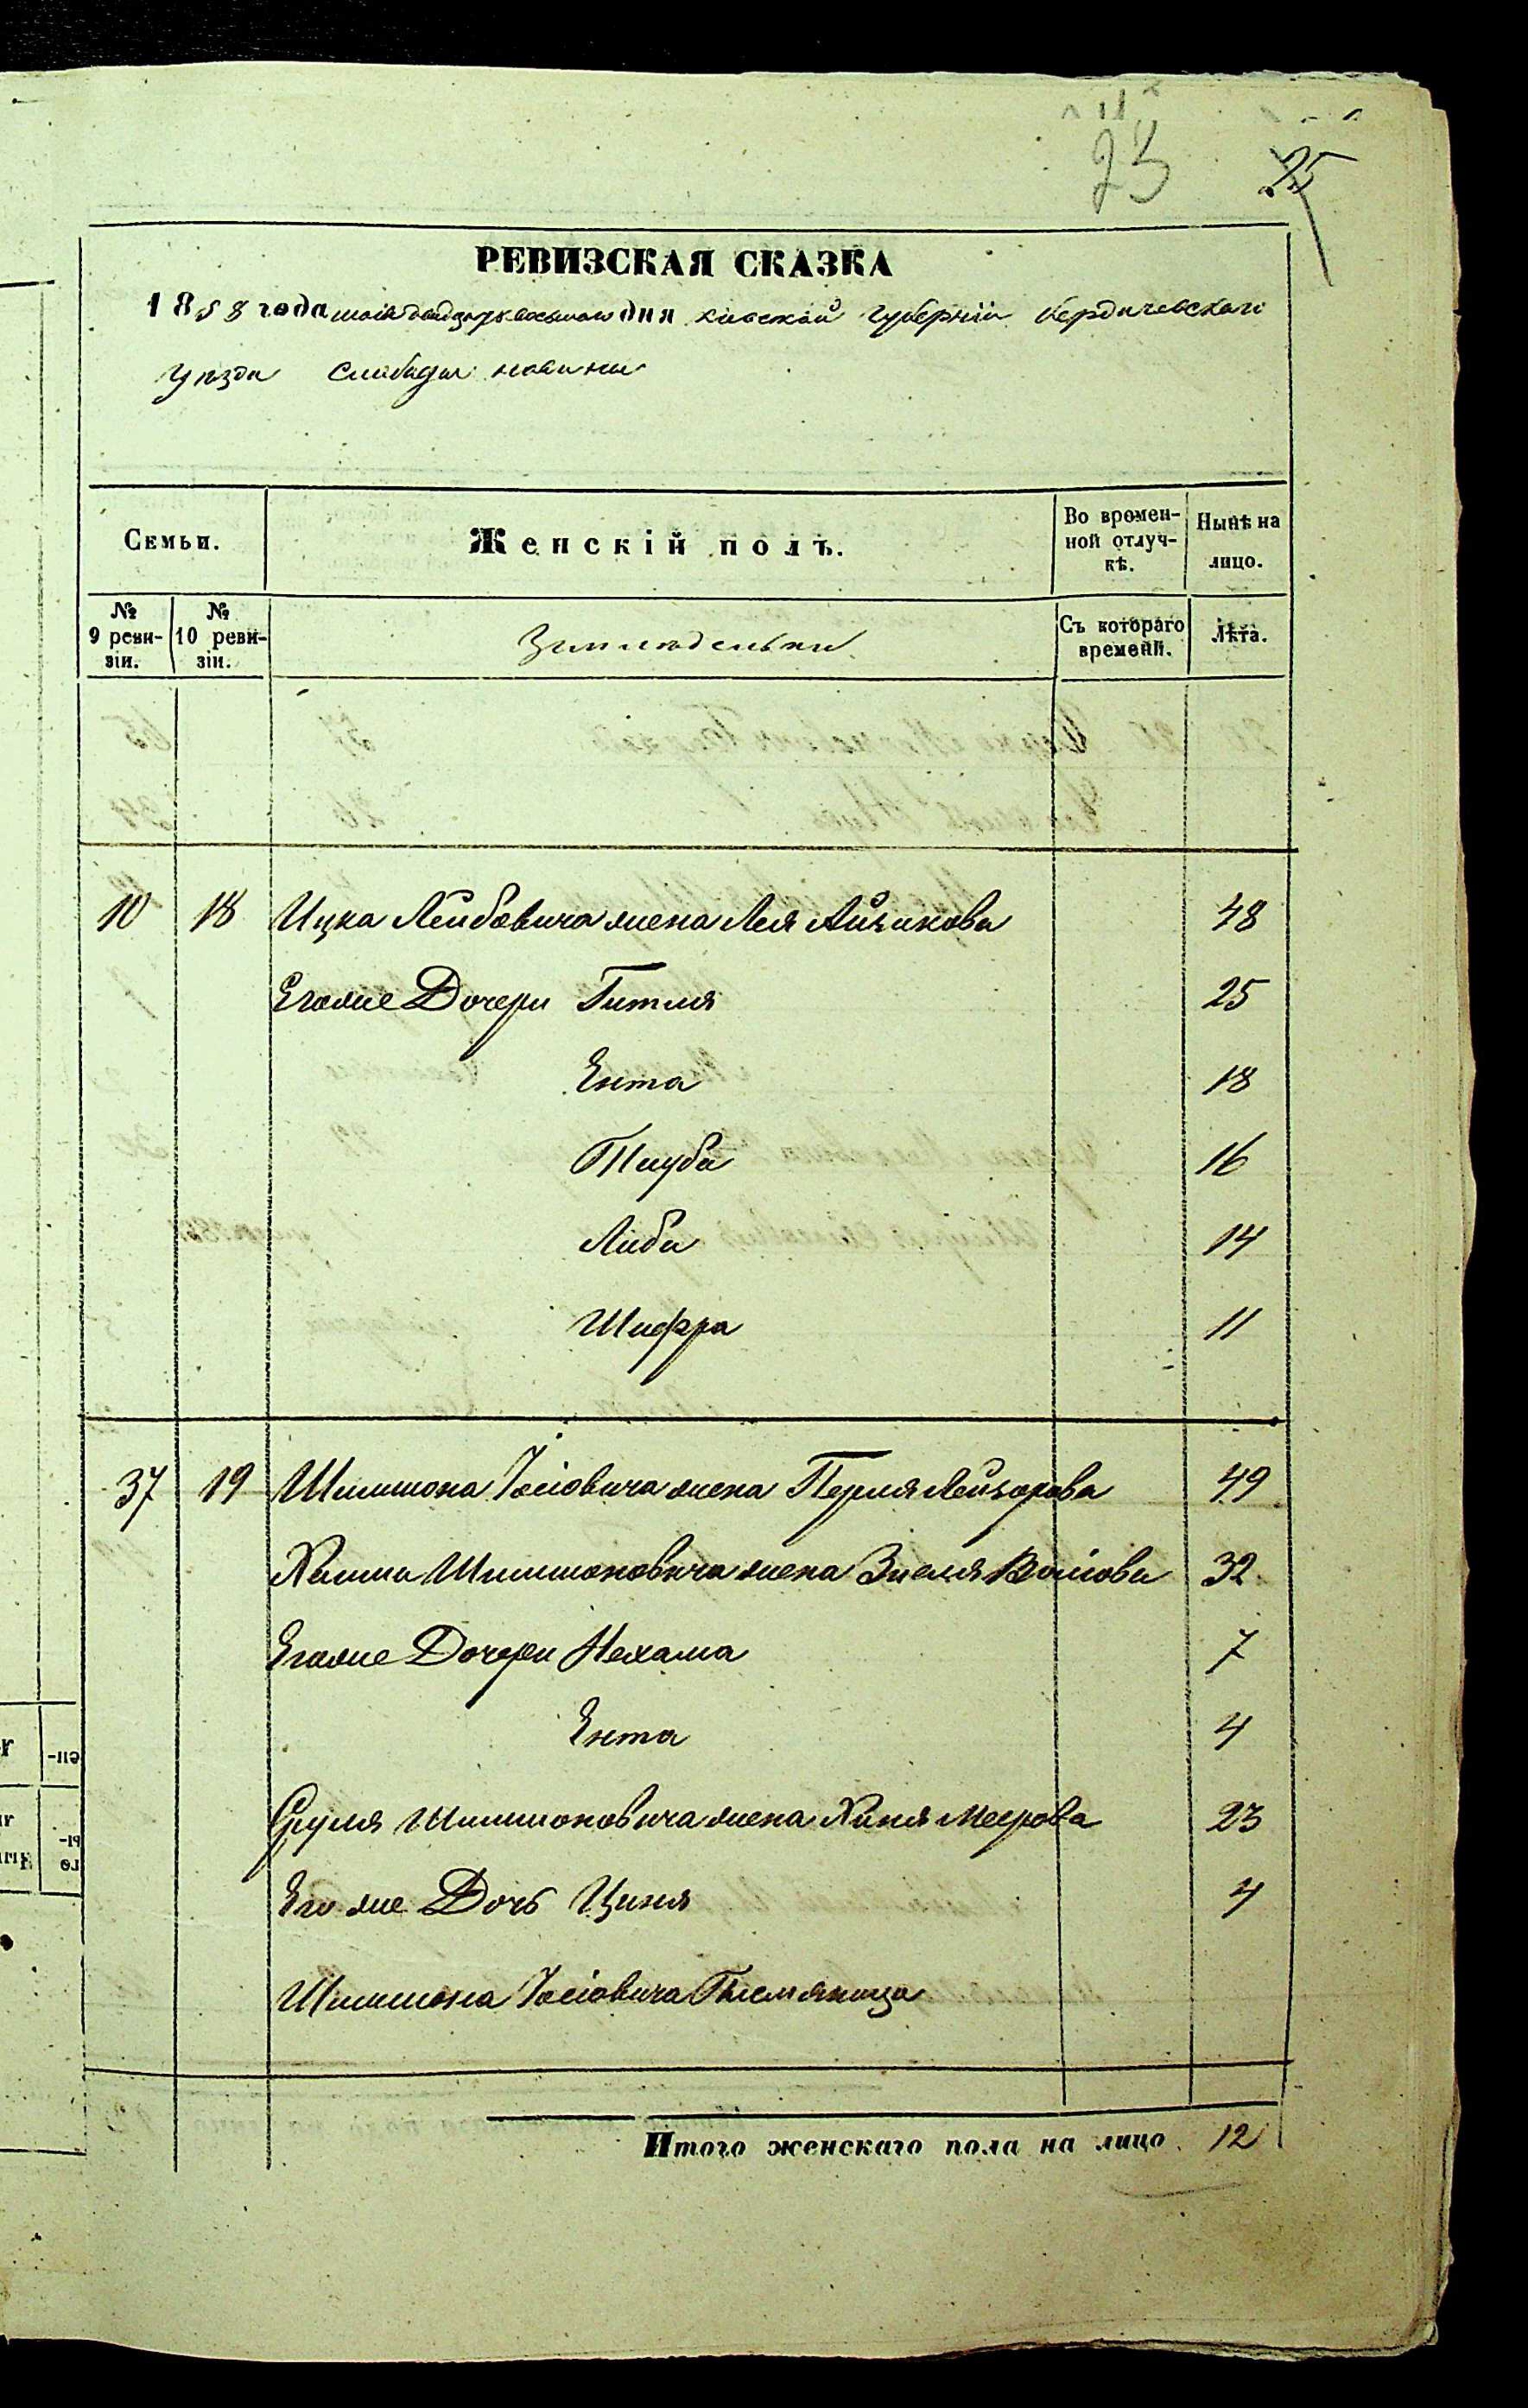 23 25
РЕВИЗСКАЯ СКАЗКА
1858 года маія двадцать восьмаго дня Кіевской губерніи Бердичевскаго
уѣзда Слободы Новины
Семьи. Женскій полъ. Во времен-ной отлуч-кѣ. Нынѣ на лицо.
№ 9 реви-зіи. № 10 реви-зіи. Земледельцы Съ котораго времени. Лѣта.
10 18 Ицка Лейбовича жена Лея Айзикова 48
Его же Дочери Гитля 25
Ента 18
Тауба 16
Либа 14
Шифра 11
37 19 Шимшона Іосіовича жена Перля Лейзорова 49
Хаима Шимшоновича жена Знеля Волкова 32
Его же Дочери Нехама 7
Ента 4
Сруля Шимшоновича жена Хиня Меерова 23
Его же Дочь Циня 4
Шимшона Іосіовича Племяница
Итого женскаго пола на лицо 12